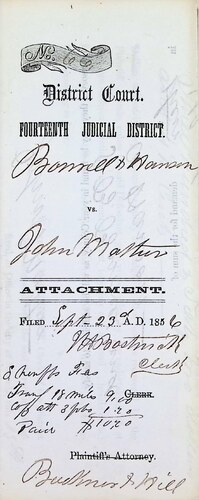 No. 66
District Court.
FOURTEENTH JUDICIAL DISTRICT.
Bonwell & Hanson
vs.
John Mather
ATTACHMENT.
FILED Sept 23d A.D. 1856
Bostwick
Clerk
Sheriffs Fees
18 miles 9.00
Cop att 3 pbs 1.20
CLERK.
Paid $10.20
Plaintiff's Attorney.
Buckner & Hill